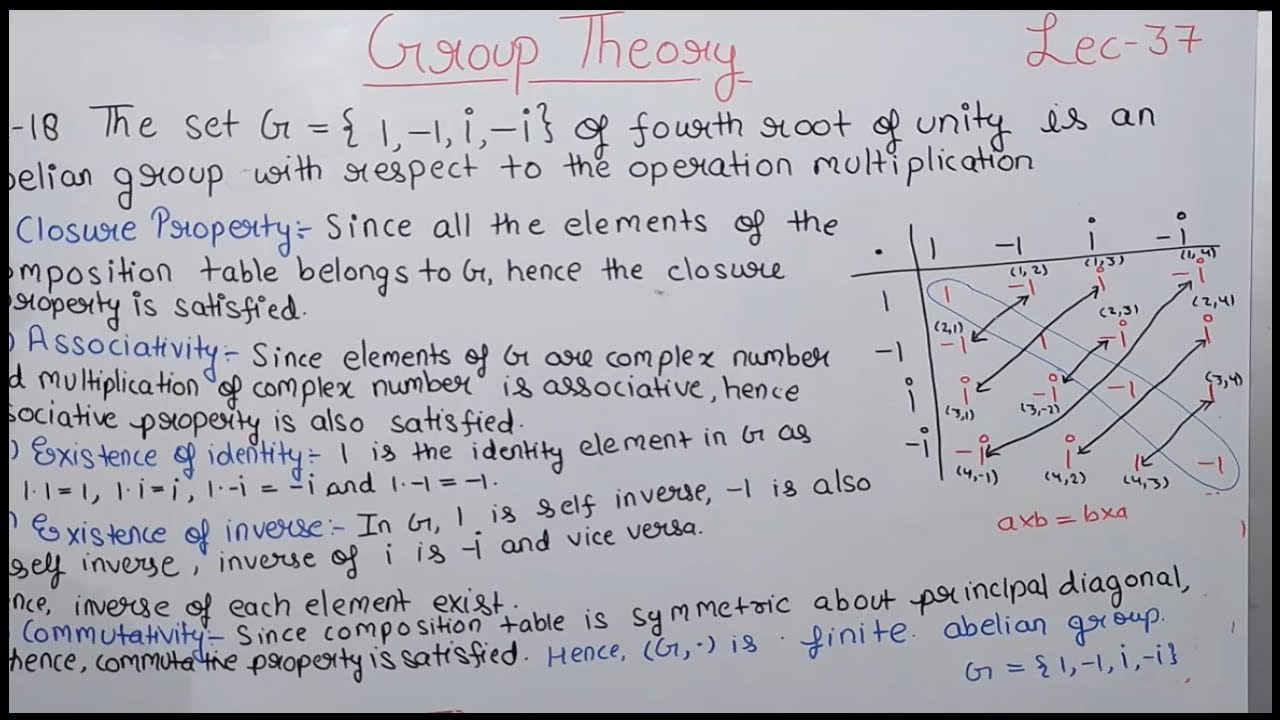 Group Theory
Lec-37
-18 The set G = { 1, -1, i, -i} of fourth root of unity is an
belian group with respect to the operation multiplication
Closure Property:- Since all the elements of the
omposition table belongs to G, hence the closure
property is satisfied.
) Associativity:- Since elements of G are complex number
d multiplication of complex number is associative, hence
sociative property is also satisfied.
) Existence of identity:- 1 is the identity element in G as
1·1=1, 1·i=i, 1·-i = -i and 1·-1=-1.
) Existence of inverse:- In G, 1 is self inverse, -1 is also
self inverse, inverse of i is -i and vice versa.
nce, inverse of each element exist.
Commutativity:- Since composition table is symmetric about principal diagonal,
hence, commutative property is satisfied. Hence, (G,·) is finite abelian group.
G = {1,-1, i,-i}
· 1 -1 i -i
(1,2) (1,3) (1,4)
1 1 -1 i -i
(2,1) (2,3) (2,4)
-1 -1 1 -i i
i i -i -1 1
(3,1) (3,-2) (3,4)
-i -i i 1 -1
(4,-1) (4,2) (4,3)
a×b = b×a